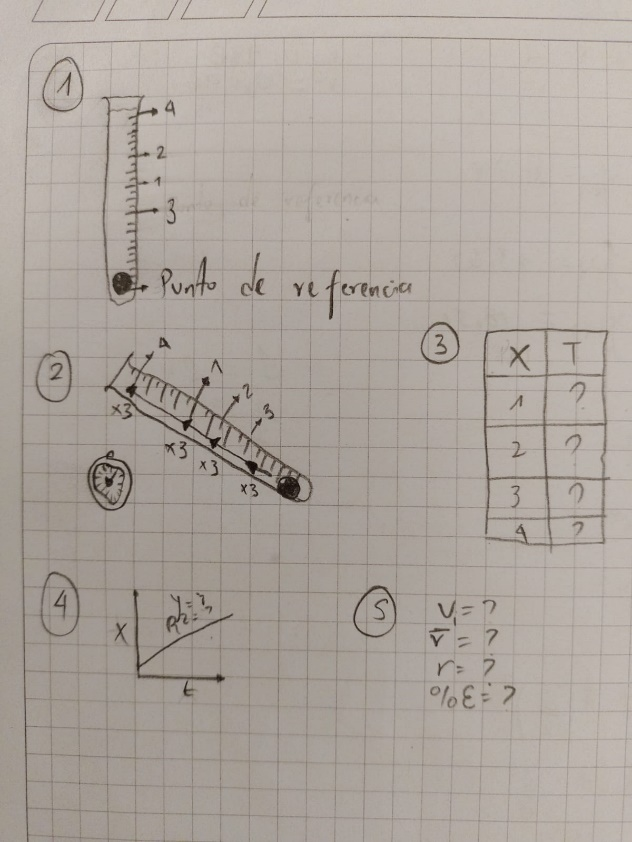 1
4
2
1
3
Punto de referencia
2
4
1
2
3
x3
x3
x3
x3
3
X T
1 ?
2 ?
3 ?
4 ?
4
y=?
R²=?
X
t
5
V₁=?
V̅=?
r=?
%E=?